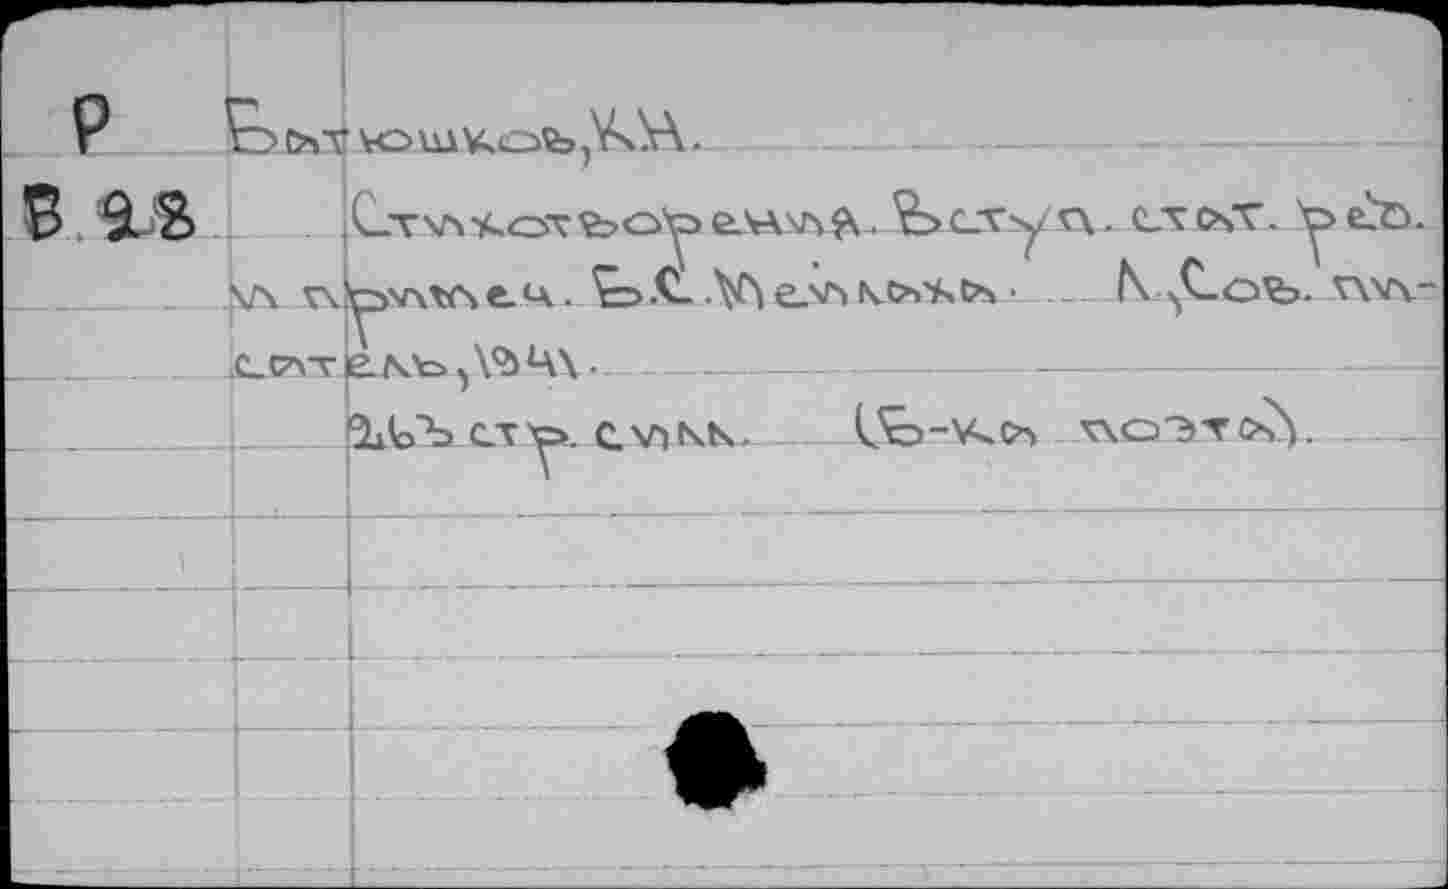 Р Батюшков, К.Н.
В.28 Стихотворения. Вступ. стат. ред.
и примеч. Б.С. Мейлаха. Л., Сов. пи-
сатель, 1941.
стр. силл. (Б-ка поэта).